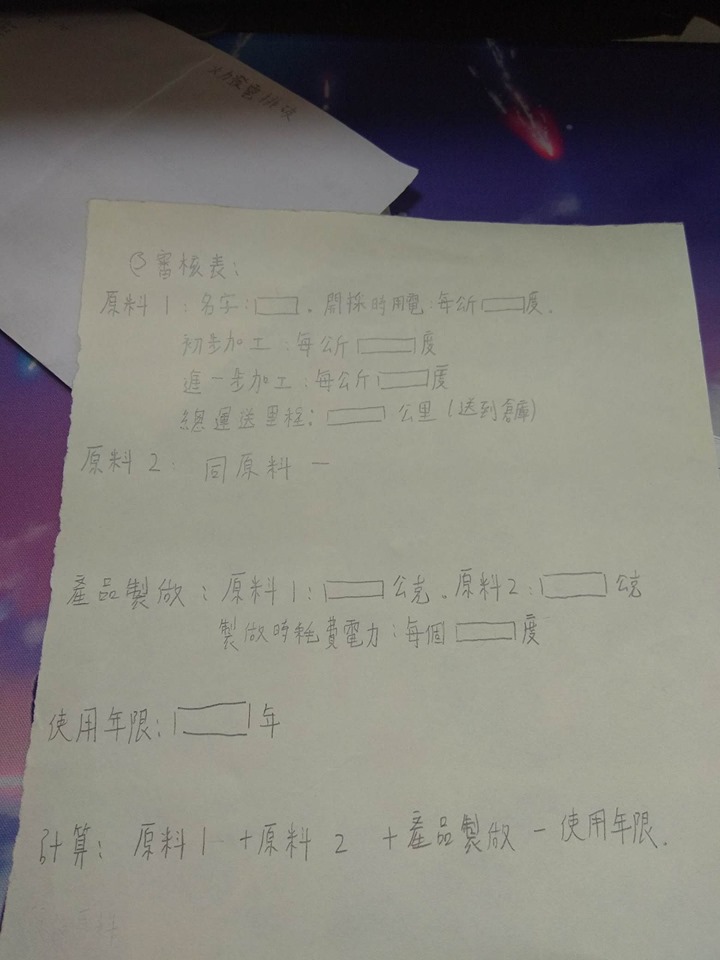 審核表:
原料1:名字:。開採時用電:每公斤度.
初步加工:每公斤度
進一步加工:每公斤度
總運送里程:公里(送到倉庫)
原料2:同原料一
產品製做:原料1:公克.原料2:公克
製做時耗費電力:每個度
使用年限:年
計算:原料1+原料2+產品製做-使用年限.